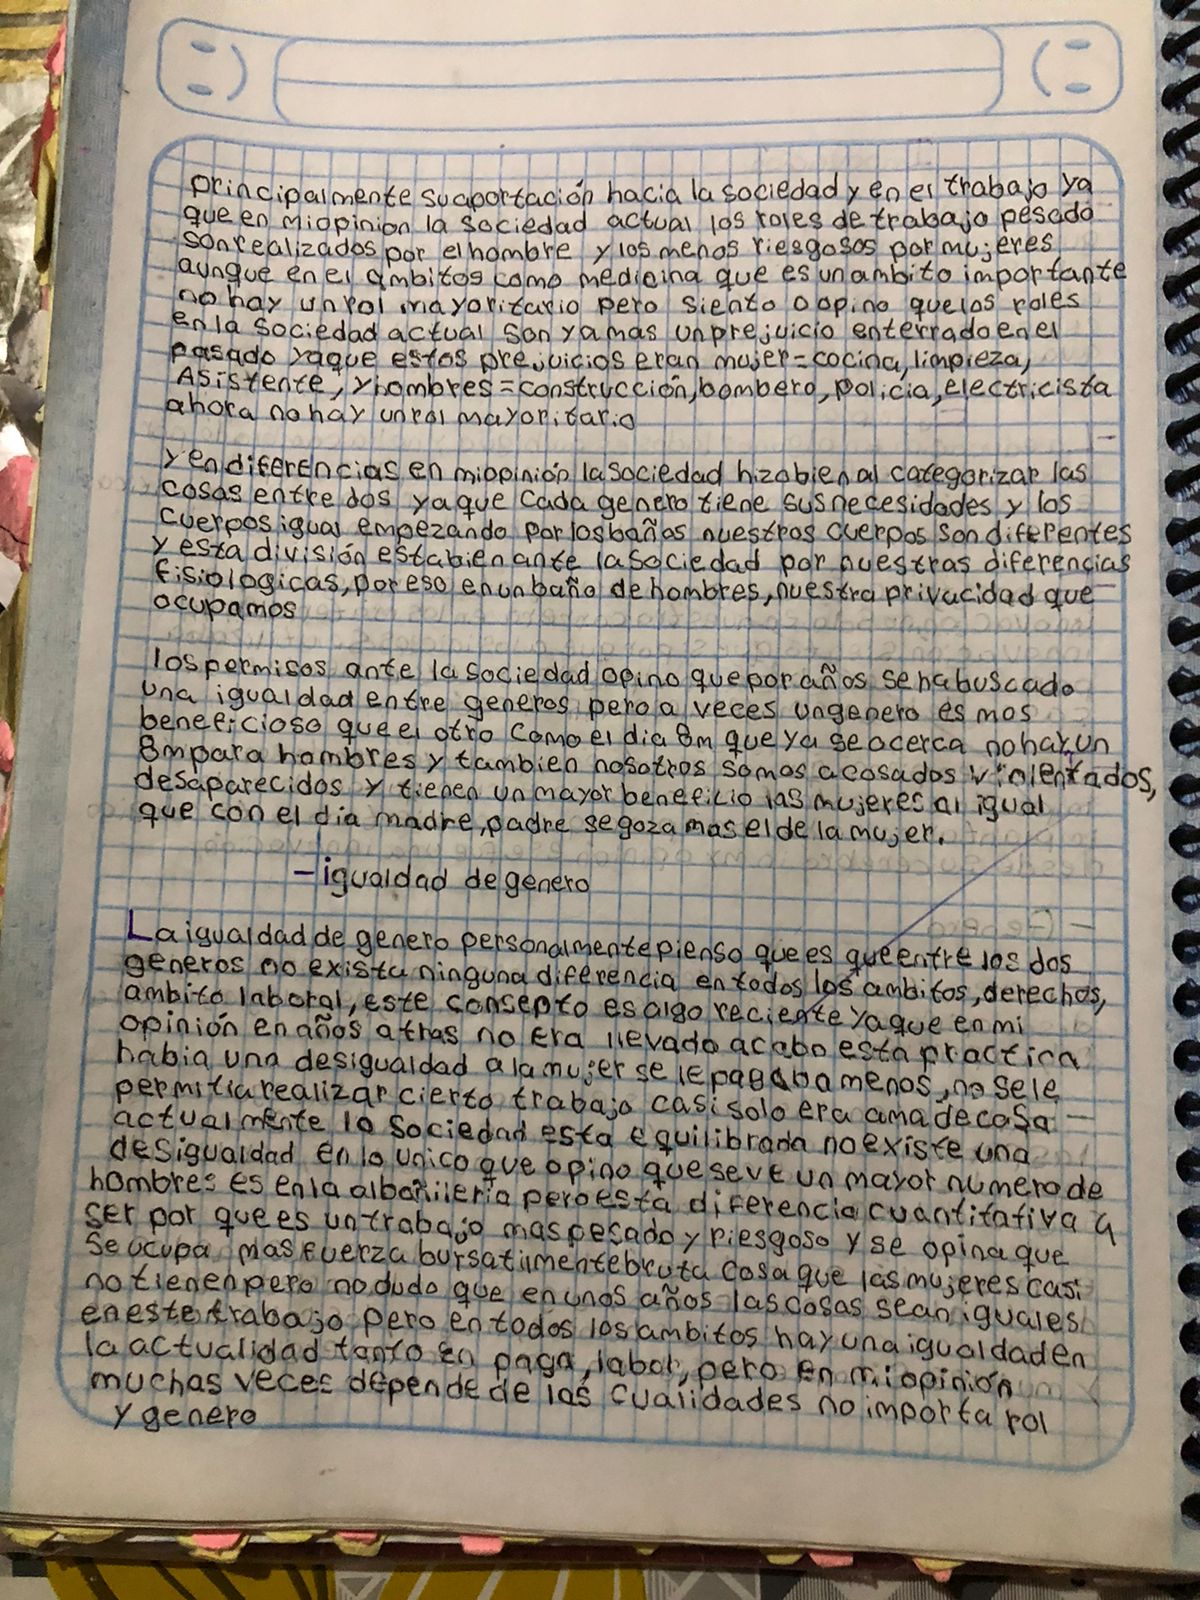 principalmente su aportación hacia la sociedad y en el trabajo ya
que en mi opinion la sociedad actual los roles de trabajo pesado
son realizados por el hombre y los menos riesgosos por mujeres
aunque en el ambitos como medicina que es un ambito importante
no hay un rol mayoritario pero siento o opino que los roles
en la sociedad actual son ya mas un prejuicio enterrado en el
pasado ya que estos prejuicios eran mujer=cocina, limpieza,
Asistente, y hombres=construcción, bombero, policia, electricista
ahora no hay un rol mayoritario
y en diferencias en mi opinión la sociedad hizo bien al categorizar las
cosas entre dos ya que cada genero tiene sus necesidades y los
cuerpos igual empezando por los baños nuestros cuerpos son diferentes
y esta división esta bien ante la sociedad por nuestras diferencias
fisiologicas, por eso en un baño de hombres, nuestra privacidad que
ocupamos
los permisos ante la sociedad opino que por años se ha buscado
una igualdad entre generos pero a veces un genero es mas
beneficioso que el otro como el dia 8m que ya se acerca no hay un
8m para hombres y tambien nosotros somos acosados violentados,
desaparecidos y tienen un mayor beneficio las mujeres al igual
que con el dia madre, padre se goza mas el de la mujer.
- igualdad de genero
La igualdad de genero personalmente pienso que es que entre los dos
generos no exista ninguna diferencia en todos los ambitos, derechos,
ambito laboral, este consepto es algo reciente ya que en mi
opinión en años atras no era llevado acabo esta practica
habia una desigualdad a la mujer se le pagaba menos, no se le
permitia realizar cierto trabajo casi solo era ama de casa
actualmente la sociedad esta equilibrada no existe una
desigualdad en lo unico que opino que se ve un mayor numero de
hombres es en la albañileria pero esta diferencia cuantitativa a
ser por que es un trabajo mas pesado y riesgoso y se opina que
se ocupa mas fuerza bursatilmente bruta cosa que las mujeres casi
no tienen pero no dudo que en unos años las cosas sean iguales
en este trabajo pero en todos los ambitos hay una igualdad en
la actualidad tanto en paga, labor, pero en mi opinión
muchas veces depende de las cualidades no importa rol
y genero